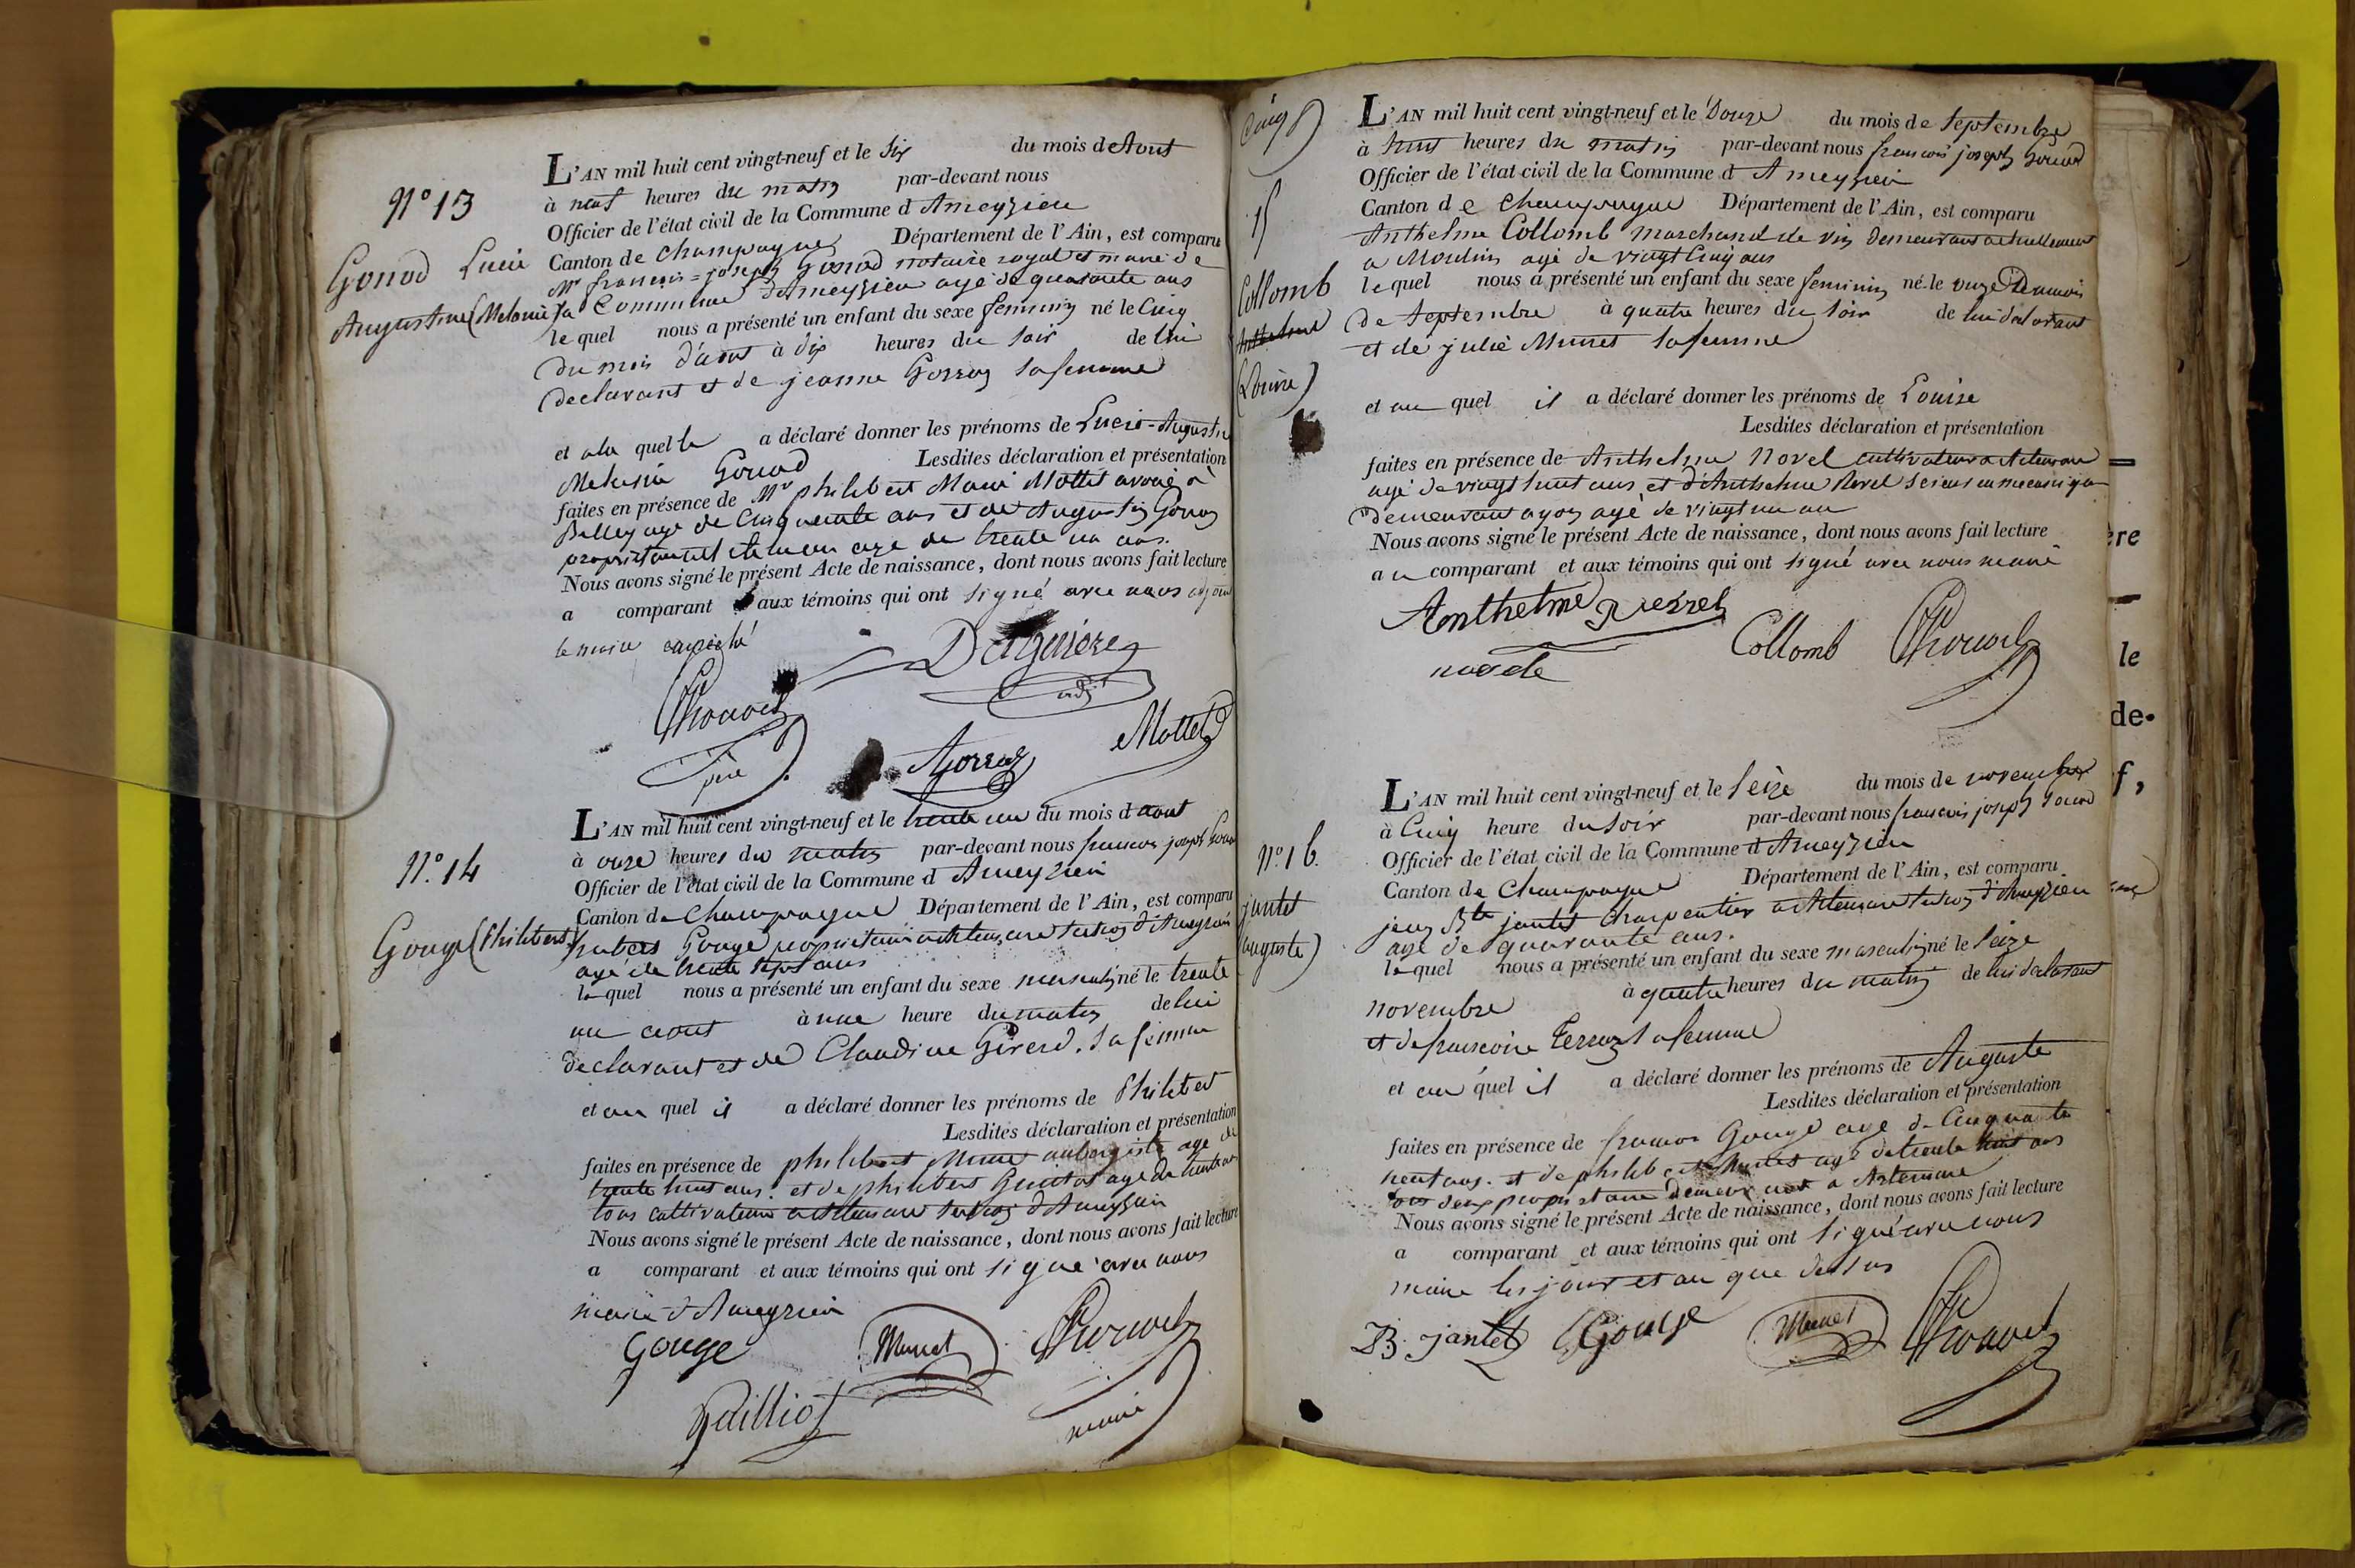 N° 13
Gonod Lucie
Augustine (Melanie)
L'AN mil huit cent vingt-neuf et le Six du mois de Aout
à neuf heures du matin par-devant nous
Officier de l'état civil de la Commune d'Ameyzieu
Canton de Champagne Département de l'Ain, est comparu
Mr françois=joseph Gonod notaire royal et maire de
la Commune d'Ameyzieu agé de quarante ans
lequel nous a présenté un enfant du sexe feminin né le Cinq
du mois d'aout à dix heures du soir de lui
declarant et de jeanne Gorraz sa femme
et a la quelle a déclaré donner les prénoms de Lucie-Augustine
Gonod Lesdites déclaration et présentation
faites en présence de Mr philibert Mottet avoué à
Belley agé de Cinquante ans et de Augustin
agé de trente un ans.
Nous avons signé le présent Acte de naissance, dont nous avons fait lecture
a comparant aux témoins qui ont signé avec nous adjoint
le maire empeché
père
adjt
Mottet
N°. 14
Gouge (Philibert)
L'AN mil huit cent vingt-neuf et le trente un du mois d aout
à onze heures du matin par-devant nous francois joseph Gonod
Officier de l'état civil de la Commune d Ameyzieu
Canton de Champagne Département de l'Ain, est comparu
Gouge proprietaire d'Ameyzieu
agé de trente sept ans
lequel nous a présenté un enfant du sexe masculin né le trente
un aout à une heure du matin de lui
declarant et de Claudine Girerd. sa femme
et au quel il a déclaré donner les prénoms de Philibert
Lesdites déclaration et présentation
faites en présence de philibert Munet aubergiste age de
trente huit ans. et de philibert age de
tous cultivateurs d'Ameyzieu
Nous avons signé le présent Acte de naissance, dont nous avons fait lecture
a comparant et aux témoins qui ont signé avec nous
maire d'Ameyzieu
Gouge Munet
maire
15
Collomb
Anthelme
(Louise)
L'AN mil huit cent vingt-neuf et le Douze du mois de Septembre
à huit heures du matin par-devant nous francois joseph Gonod
Officier de l'état civil de la Commune d Ameyzieu
Canton d e Champagne Département de l'Ain, est comparu
Anthelme Collomb marchand de vin demeurant actuellement
a Moulins agé de vingt Cinq ans
lequel nous a présenté un enfant du sexe feminin né le onze du mois
de Septembre à quatre heures du soir de lui declarant
et de julie Munet sa femme
et au quel il a déclaré donner les prénoms de Louise
Lesdites déclaration et présentation
faites en présence de Anthelme Novel cultivateur
agé de vingt huit ans et d'Anthelme
demeurant agé de vingt un an
Nous avons signé le présent Acte de naissance, dont nous avons fait lecture
au comparant et aux témoins qui ont signé avec nous maire
Anthelme
Collomb
N°. 16.
jantet
(auguste)
L'AN mil huit cent vingt-neuf et le Seize du mois de novembre
à Cinq heure du soir par-devant nous francois joseph Gonod
Officier de l'état civil de la Commune d Ameyzieu
Canton de Champagne Département de l'Ain, est comparu
jean Bte jantet Charpentier d'Ameyzieu
agé de quarante ans.
lequel nous a présenté un enfant du sexe masculin né le Seize
novembre à quatre heures du matin de lui declarant
et de francoise sa femme
et au quel il a déclaré donner les prénoms de Auguste
Lesdites déclaration et présentation
faites en présence de francois Gouge agé de Cinquante
neuf ans. et de philibert Munet agé de trente huit ans
tous deux proprietaire demeurant a
Nous avons signé le présent Acte de naissance, dont nous avons fait lecture
a comparant et aux témoins qui ont signé avec nous
maire les jour et an que dessus
B. jantet Gouge Munet
ère
le
de
f,